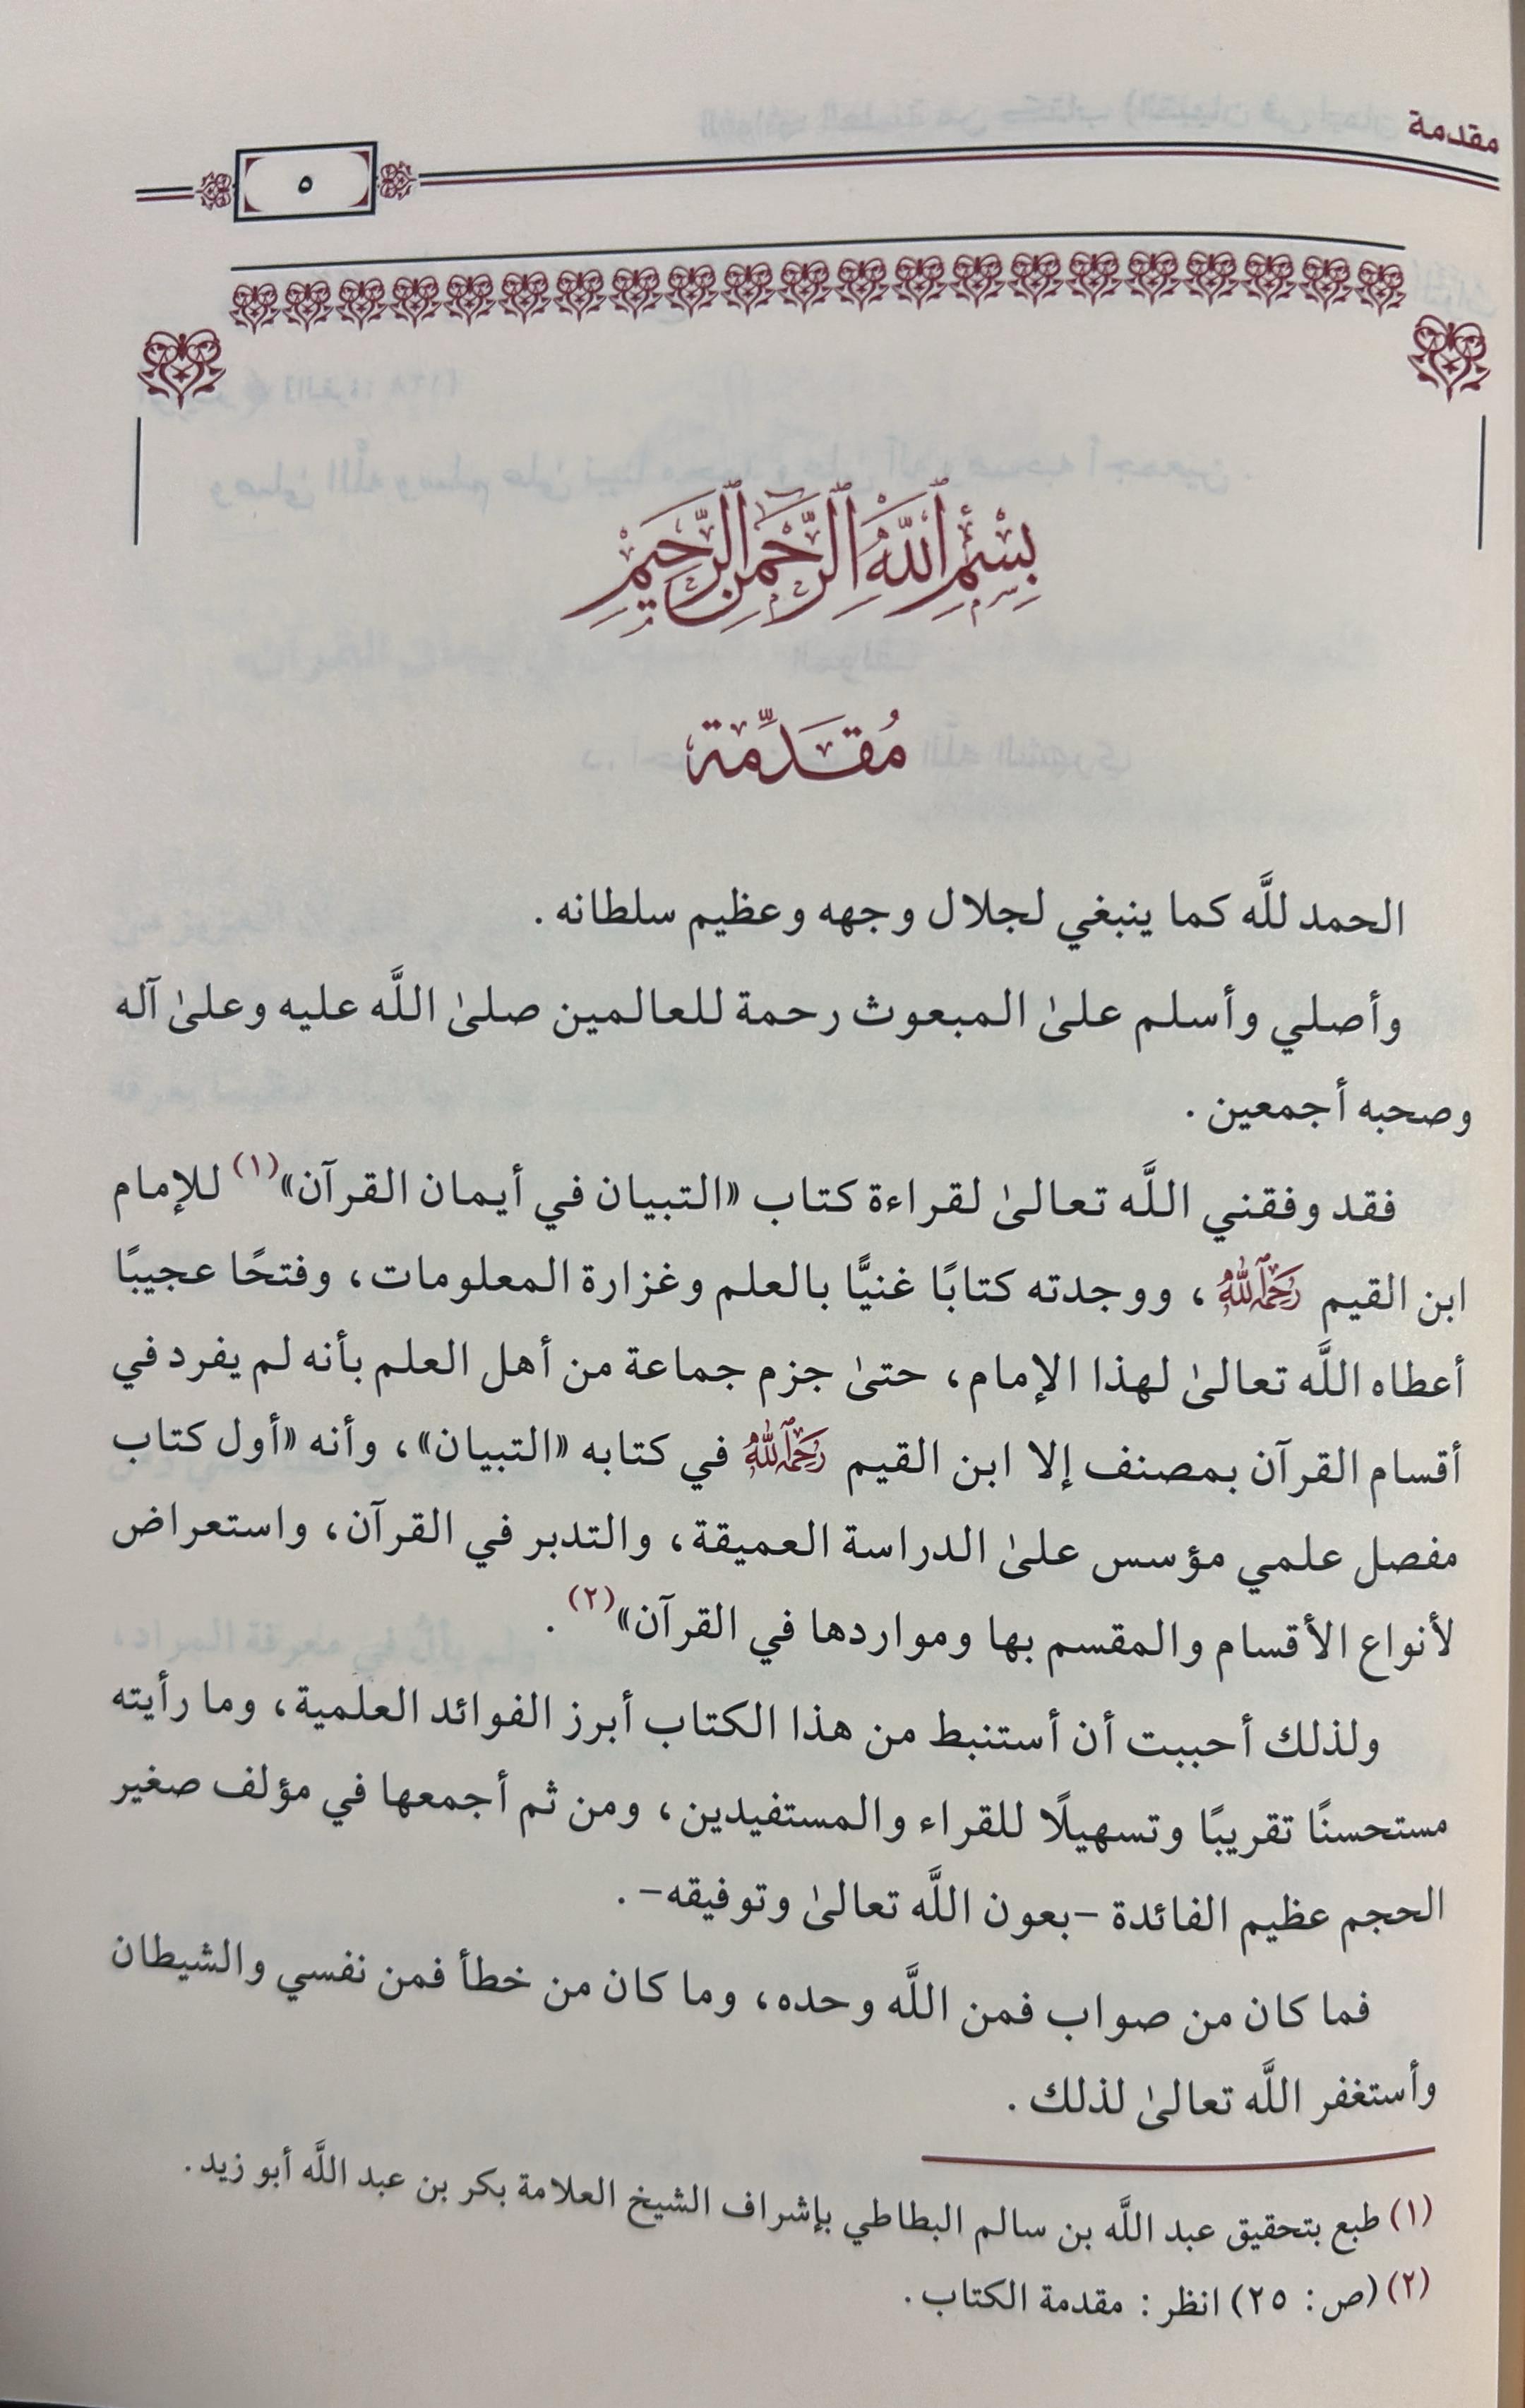 مقدمة
٥
بِسْمِ ٱللَّهِ ٱلرَّحْمَٰنِ ٱلرَّحِيمِ
مُقَدِّمة
الحمد للَّه كما ينبغي لجلال وجهه وعظيم سلطانه.
وأصلي وأسلم علىٰ المبعوث رحمة للعالمين صلىٰ اللَّه عليه وعلىٰ آله
وصحبه أجمعين.
فقد وفقني اللَّه تعالىٰ لقراءة كتاب «التبيان في أيمان القرآن»(١) للإمام
ابن القيم رَحِمَهُ ٱللَّهُ، ووجدته كتابًا غنيًّا بالعلم وغزارة المعلومات، وفتحًا عجيبًا
أعطاه اللَّه تعالىٰ لهذا الإمام، حتىٰ جزم جماعة من أهل العلم بأنه لم يفرد في
أقسام القرآن بمصنف إلا ابن القيم رَحِمَهُ ٱللَّهُ في كتابه «التبيان»، وأنه «أول كتاب
مفصل علمي مؤسس علىٰ الدراسة العميقة، والتدبر في القرآن، واستعراض
لأنواع الأقسام والمقسم بها ومواردها في القرآن»(٢).
ولذلك أحببت أن أستنبط من هذا الكتاب أبرز الفوائد العلمية، وما رأيته
مستحسنًا تقريبًا وتسهيلًا للقراء والمستفيدين، ومن ثم أجمعها في مؤلف صغير
الحجم عظيم الفائدة -بعون اللَّه تعالىٰ وتوفيقه-.
فما كان من صواب فمن اللَّه وحده، وما كان من خطأ فمن نفسي والشيطان
وأستغفر اللَّه تعالىٰ لذلك.
(١) طبع بتحقيق عبد اللَّه بن سالم البطاطي بإشراف الشيخ العلامة بكر بن عبد اللَّه أبو زيد.
(٢) (ص: ٢٥) انظر: مقدمة الكتاب.